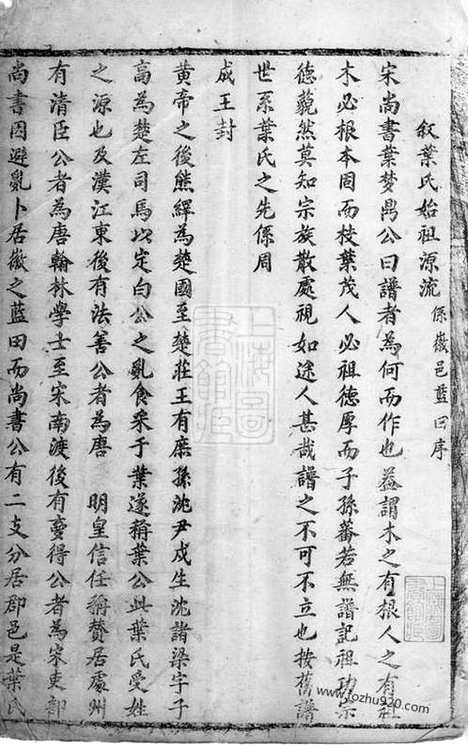 叙葉氏始祖源流 係徽邑藍田序
宋尚書葉夢鼎公曰譜者為何而作也葢謂木之有根人之有祖
木必根本固而枝葉茂人必祖德厚而子孫蕃若無譜記祖功宗
德藐然莫知宗族散處視如途人甚哉譜之不可不立也按舊譜
世系葉氏之先係周
成王封
黄帝之後熊繹為楚國至楚莊王有庶孫沈尹戍生沈諸梁字子
高為楚左司馬以定白公之亂食采于葉遂稱葉公此葉氏受姓
之源也及漢江東後有法善公者為唐 明皇信任稱赞居處州
有清臣公者為唐翰林學士至宋南渡後有夢得公者為宋吏部
尚書因避亂卜居徽之藍田而尚書公有二支分居郡邑是葉氏
上海圖書館藏
www.fozhu920.com